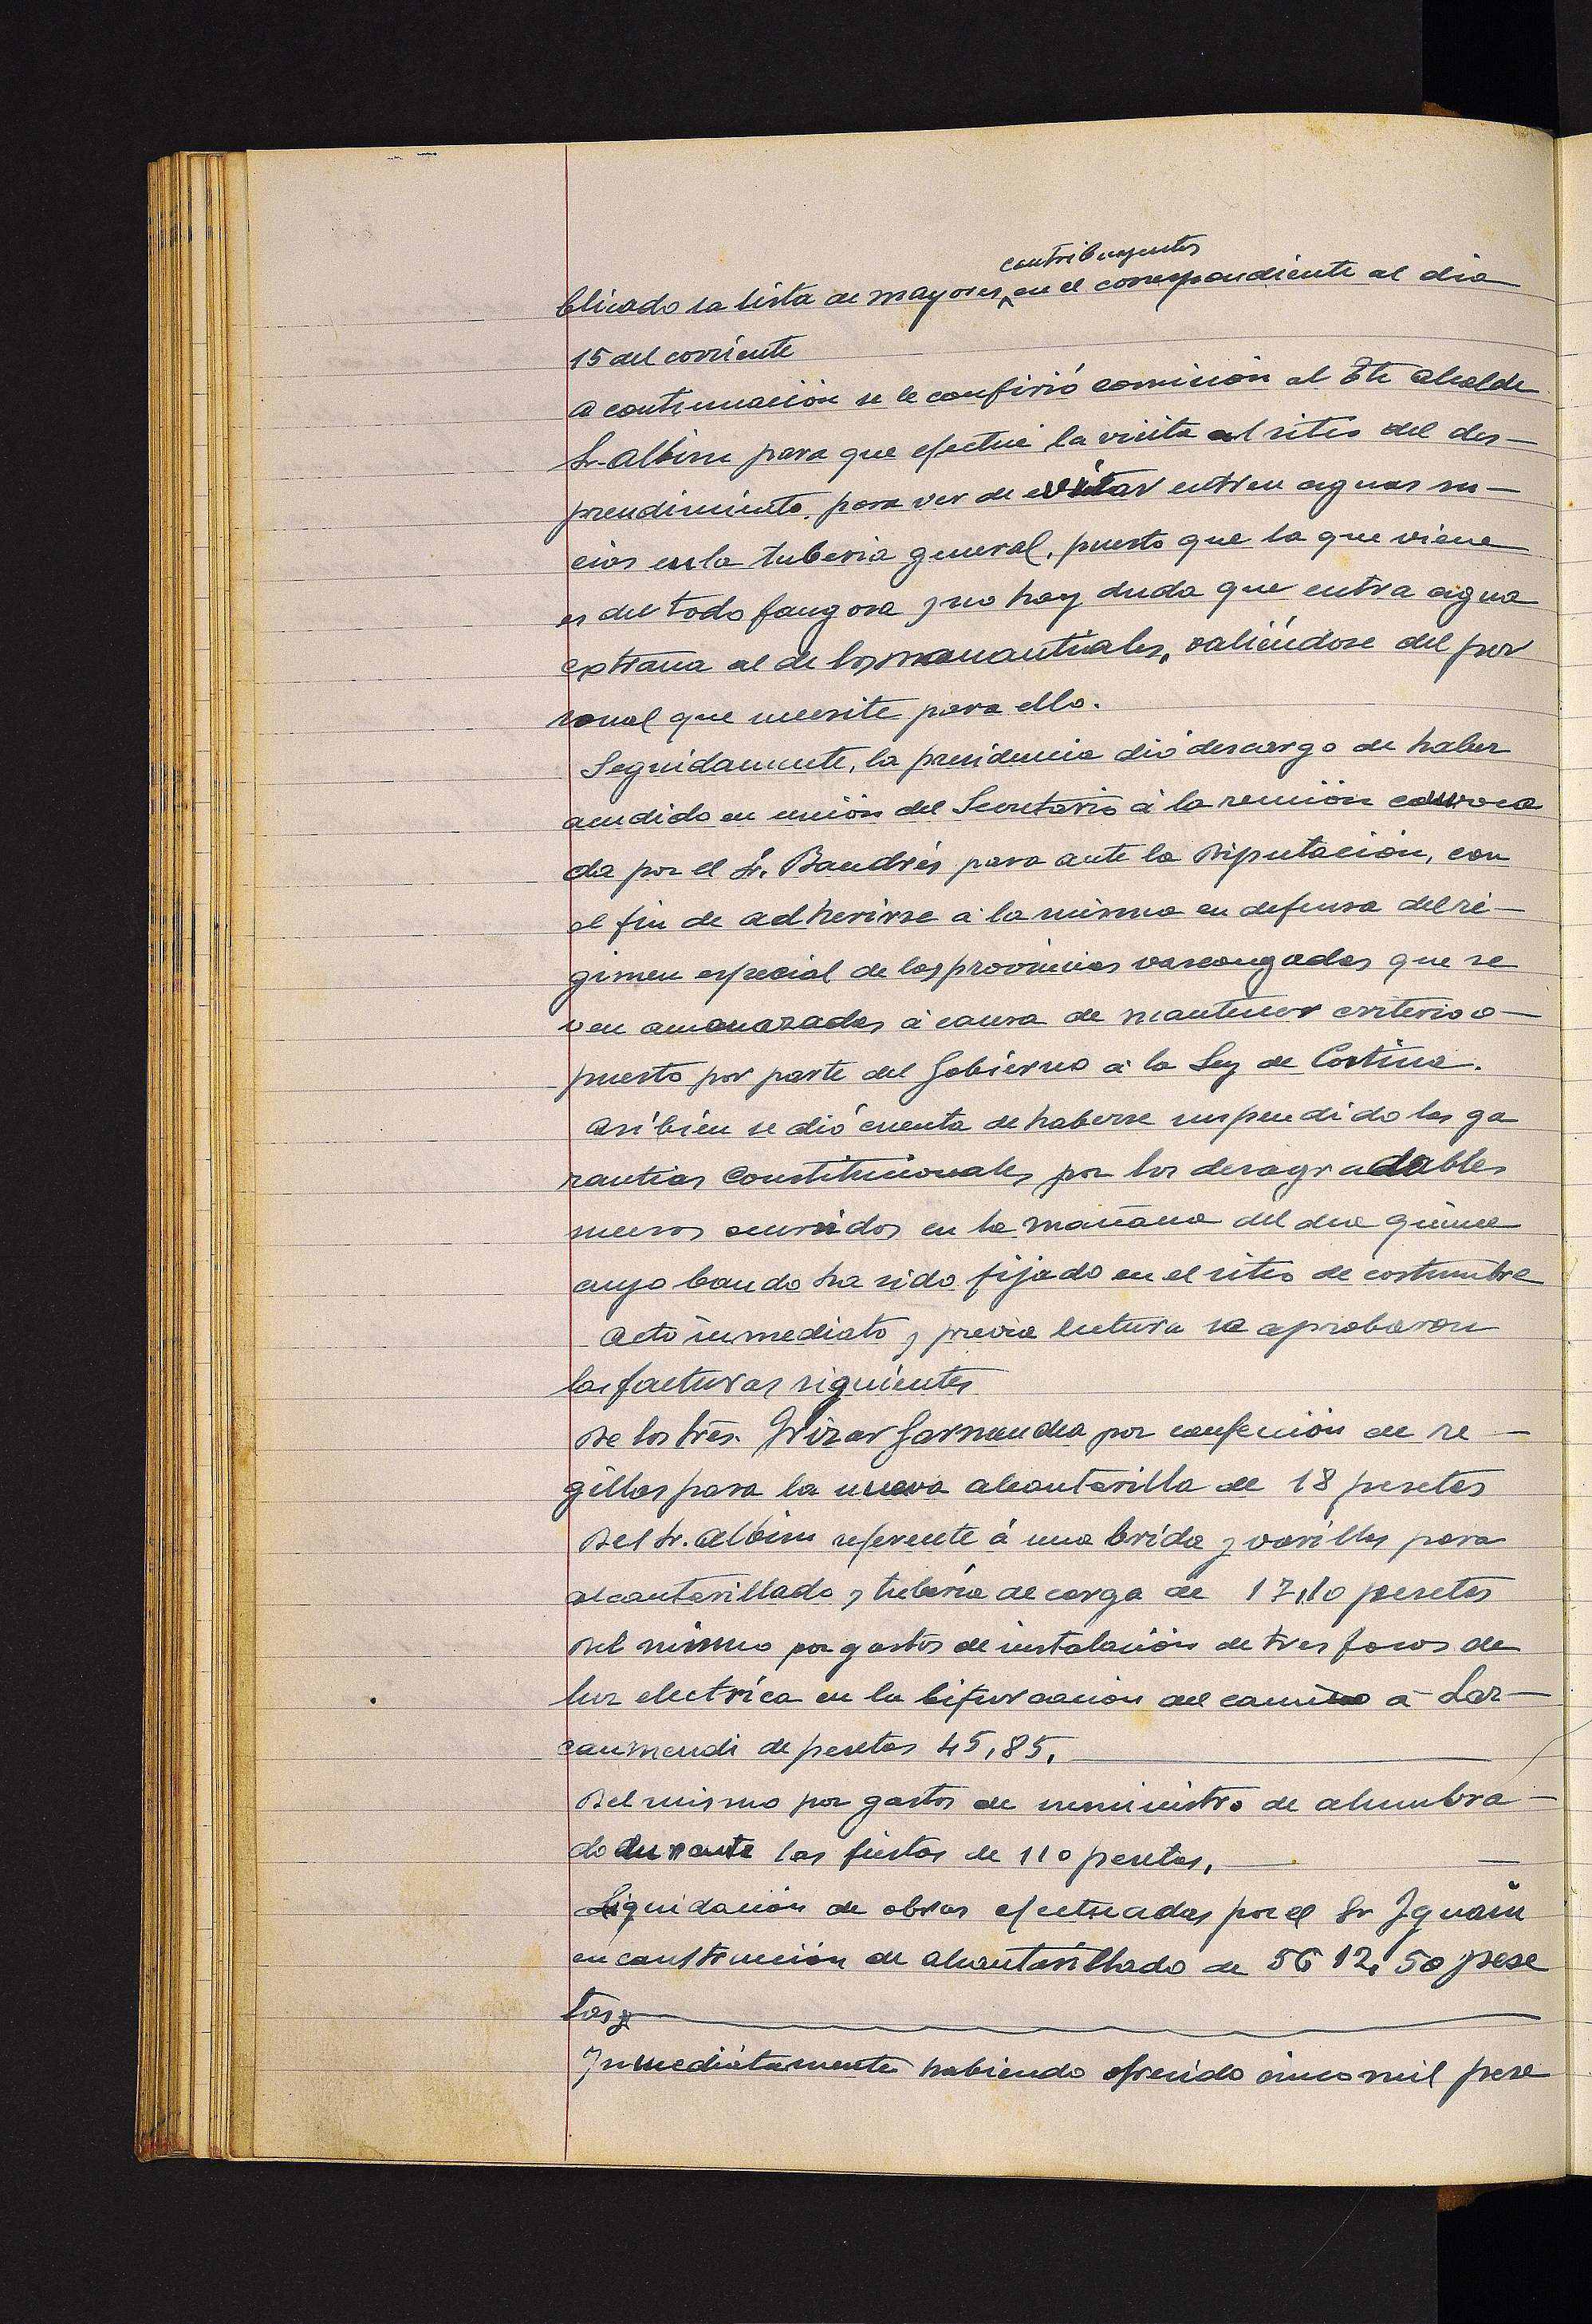 contribuyentes
blicado la lista de mayores en el correspondiente al dia
15 del corriente
a continuación se le confirió comisión al Tte alcalde
Sr. Albisu para que efectue la visita al sitio del des-
prendimiento, para ver de evitar entren aguas su-
cias en la tuberia general, puesto que la que viene
es del todo fangosa y no hay duda que entra agua
extraña al de los manantiales, valiéndose del per
sonal que necesite para ello.
Seguidamente, la presidencia dió descargo de haber
acudido en unión del Secretario á la reunión convoca
da por el Sr. Bandrés para ante la Diputación, con
el fin de adherirse á la misma en defensa del ré-
gimen especial de las provincias vascongadas que se
ven amenazadas á causa de mantener criterio o-
puesto por parte del Gobierno á la Ley de Cortina.
Asi bien se dió cuenta de haberse suspendido las ga
rantias Constitucionales por los desagradables
sucesos ocurridos en la mañana del dia quince
cuyo bando ha sido fijado en el sitio de costumbre
Acto inmediato y previa lectura se aprobaron
las facturas siguientes
De los Sres. Irizar Garmendia por confección de re-
gillas para la nueva alcantarilla de 18 pesetas
Del Sr. Albisu referente á una brida y varillas para
alcantarillado y tuberia de carga de 17,10 pesetas
Del mismo por gastos de instalación de tres focos de
luz electrica en la bifurcación del camino á Laz-
caumendi de pesetas 45,85.
Del mismo por gastos de suministro de alumbra-
do durante las fiestas de 110 pesetas,
Liquidación de obras efectuadas por el Sr Iguain
en construcción de alcantarillado de 5612,50 pese
tas
Inmediatamente habiendo ofrecido cinco mil pese